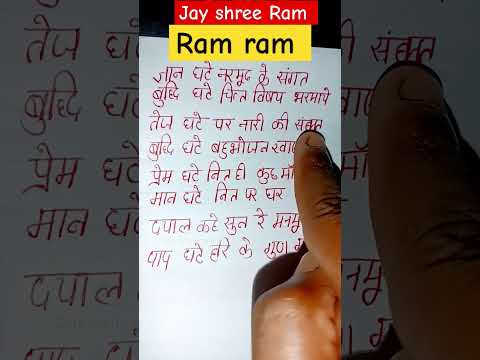 Jay shree Ram
Ram ram
ज्ञान घटे नरमूढ के संगत
बुद्धि घटे चित विषय भरमाये
तेज घटे पर नारी की संगत
बुद्धि घटे बहुभोजन
प्रेम घटे नित ही कुछ
मान घटे नित पर घर
दयाल कहे सुन रे
पाप घटे हरि के गुण